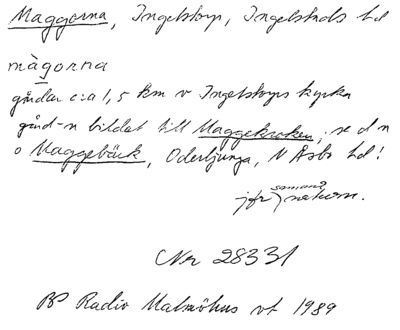 Maggorna, Ingelstorp, Ingelstads hd
màgorna
gårdar c:a 1,5 km v Ingelstorps kyrka
gård-n bildat till Maggekroken; se d n
o Maggebäck, Oderljunga, N Åsbo hd!
jfr samma naturn.
Nr 28331
BP Radio Malmöhus vt 1989